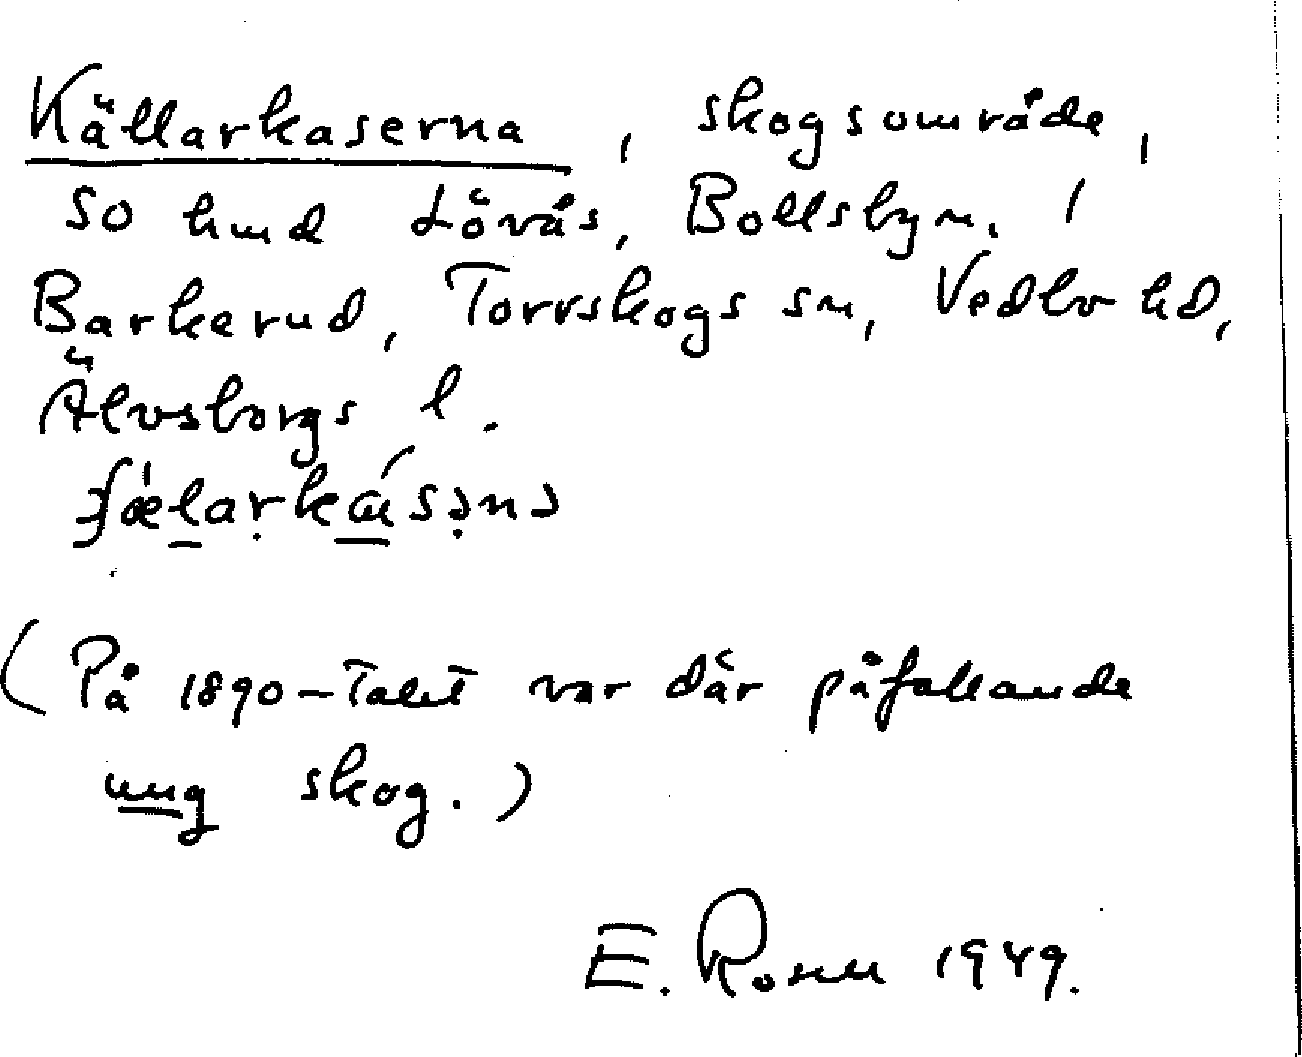 Källarkaserna, skogsområde,
SO hmd Lövås, Bollsbyn, /
Barkerud, Torrskogs sn, Vedbo hd,
Älvsborgs l.
(På 1890-talet var där påfallande
ung skog.)
E. Rosell 1949.